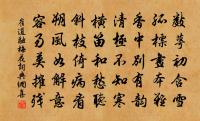 數萼初含雪
孤標畫本難
香中別有韻
清極不知寒
橫笛和愁聽
斜枝倚病看
朔風如解意
容易莫摧殘
崔道融梅花詞典網集